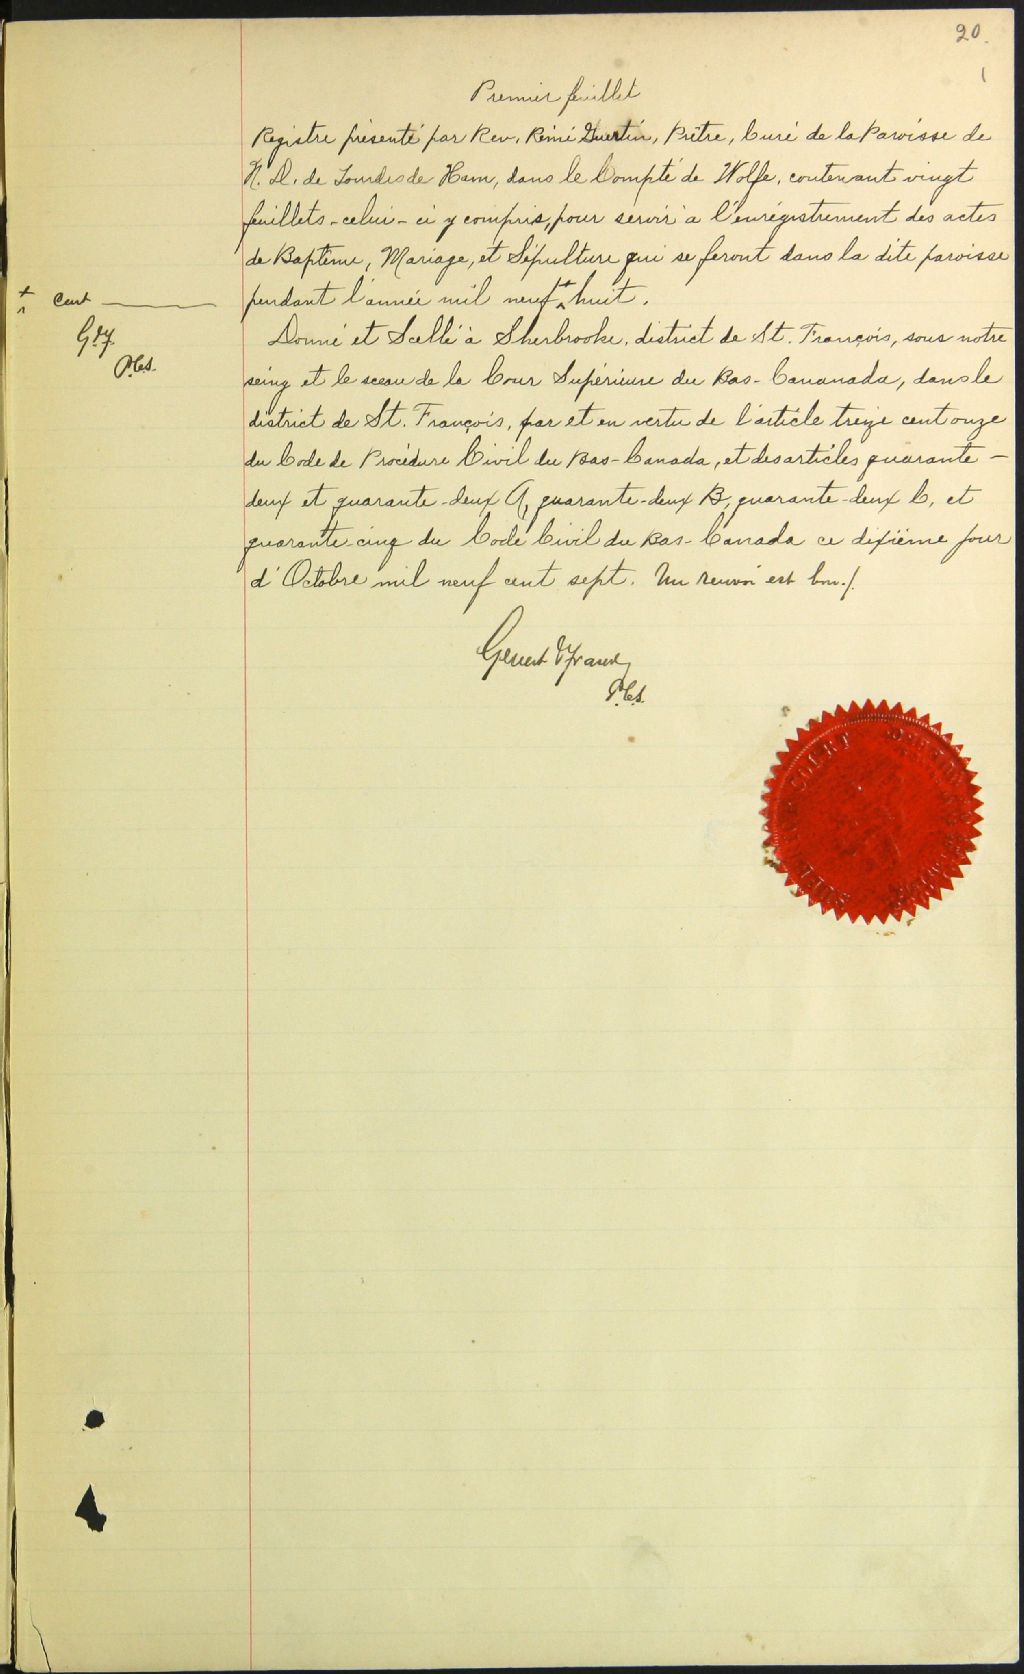 20.
1
Premier feuillet
Registre présenté par Rev. Rémi Guertin, Prêtre, Curé de la Paroisse de
N. D. de Lourdes de Ham, dans le Compté de Wolfe, contenant vingt
feuillets - celui - ci y compris, pour servir a l'enrégistrement des actes
de Baptême, Mariage, et Sépulture qui se feront dans la dite paroisse
pendant l'année mil neuf + huit.
+ Cent
G.d.F.
P.C.S.
Donné et Scellé à Sherbrooke, district de St. François, sous notre
seing et le sceau de la Cour Supérieure du Bas - Cananada, dans le
district de St. François, par et en vertu de l'article treize cent onze
du Code de Procédure Civil du Bas - Canada, et des articles quarante -
deux et quarante - deux A, quarante - deux B, quarante - deux C, et
quarante cinq du Code Civil du Bas - Canada ce dixième jour
d'Octobre mil neuf cent sept. Un renvoi est bon./.
P.C.S.
COURT